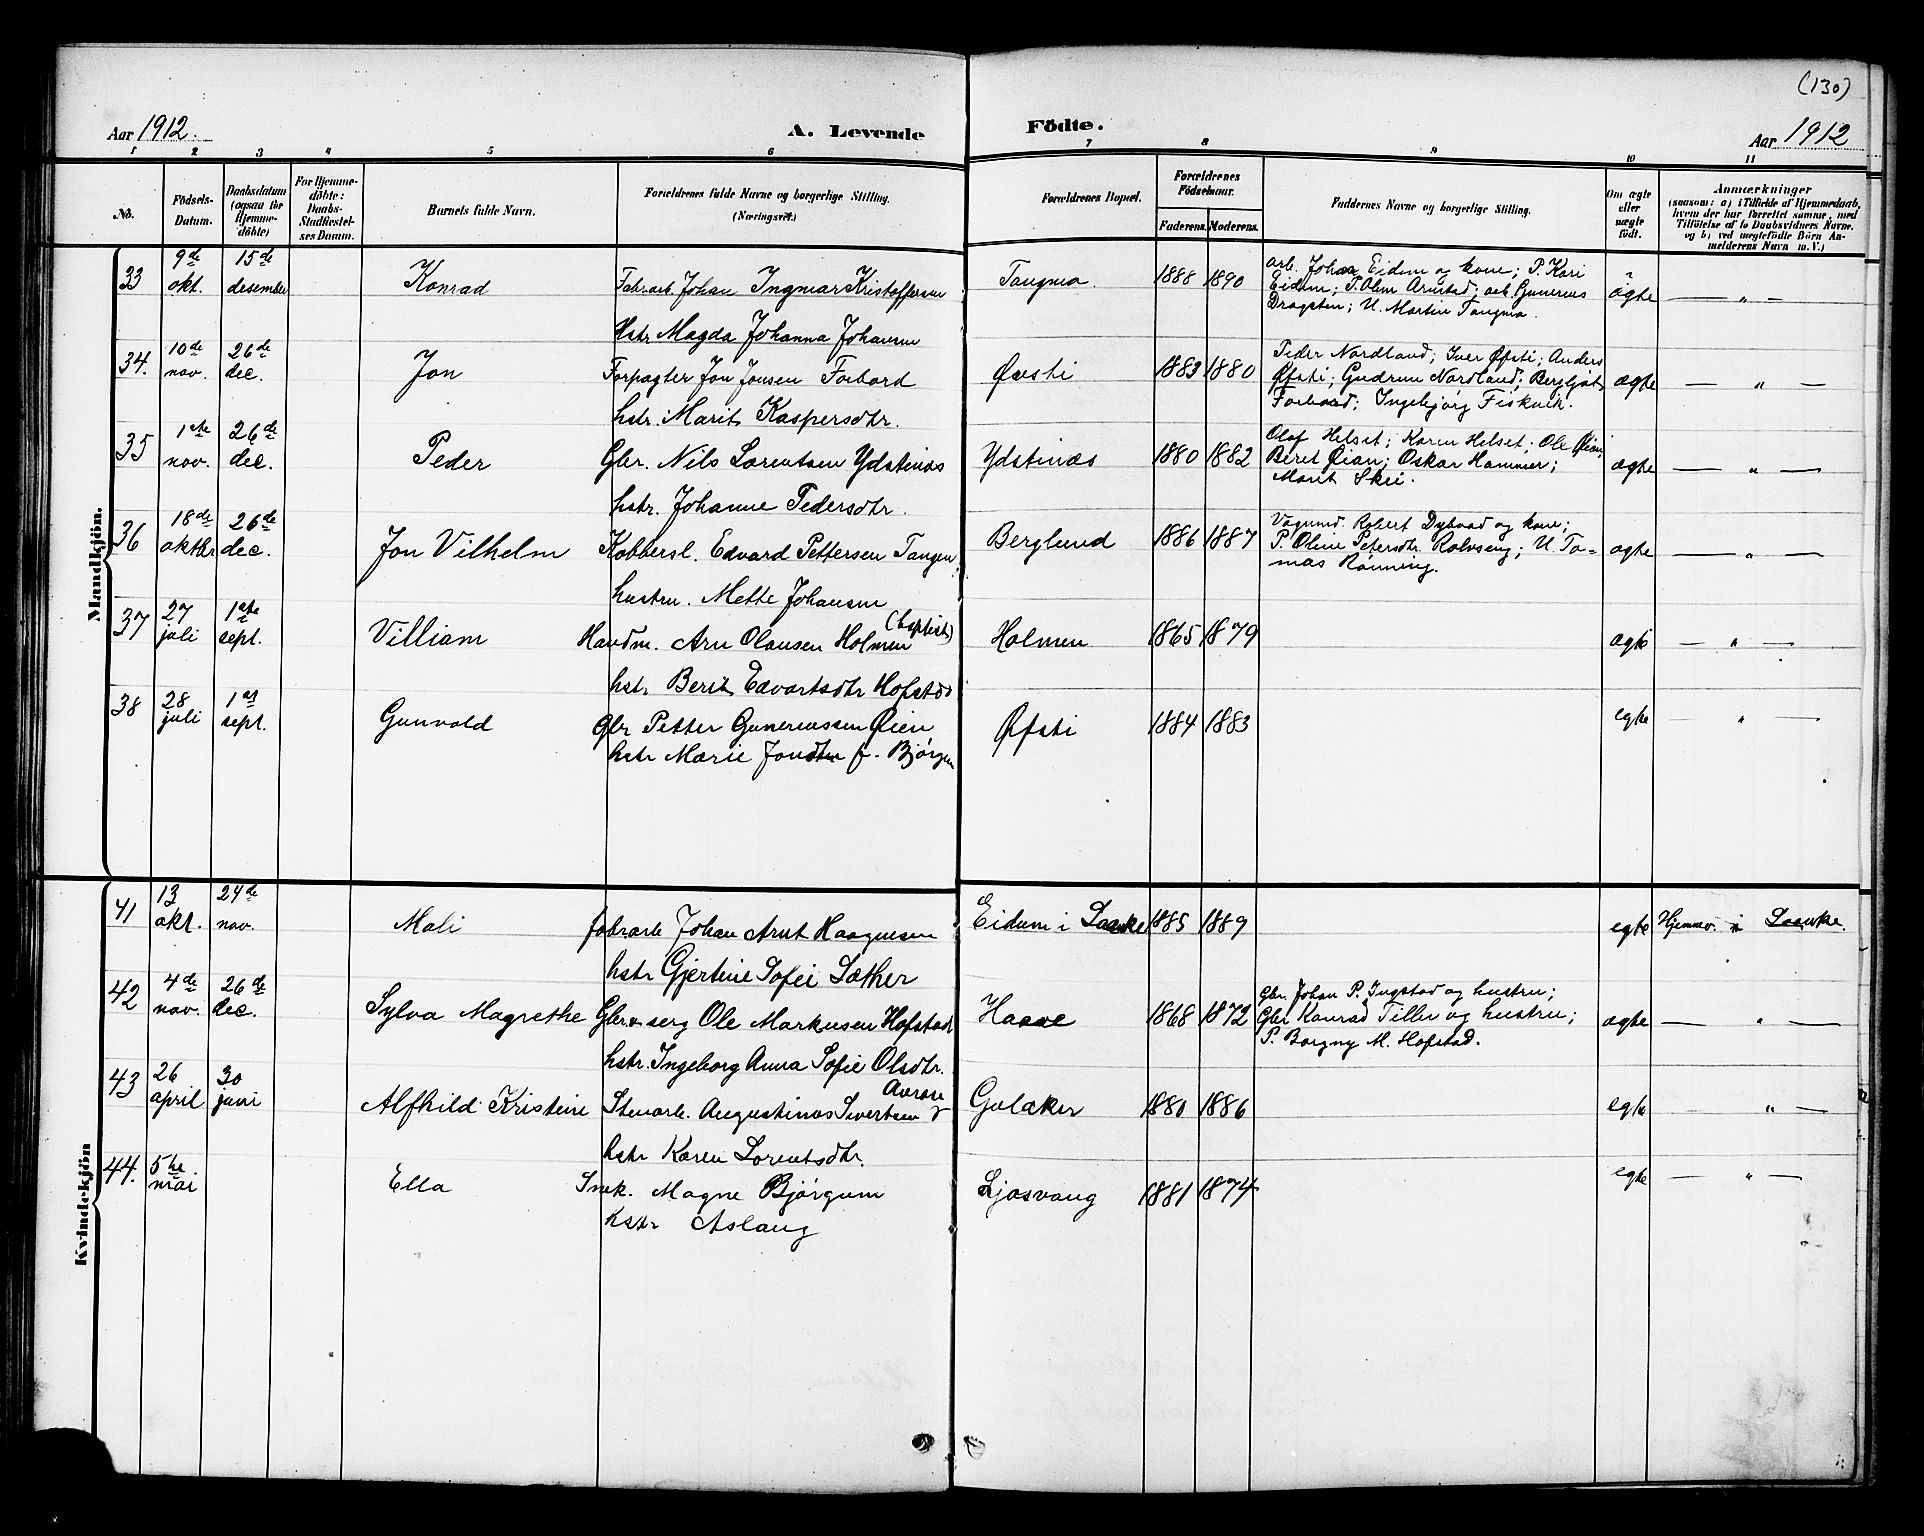 (130)
Aar 1912.
A. Levende Födte.
Aar 1912
1 2 3 4 5 6 7 8 9 10 11
No.
Födsels-
Datum.
Daabsdatum
(ogsaa for
Hjemme-
döbte)
For Hjemme-
döbte:
Daabs-
Stadfæstel-
ses Datum.
Barnets fulde Navn.
Forældrenes fulde Navne og borgerlige Stilling.
(Næringsvei.)
Forældrenes Bopæl.
Forældrenes
Födselsaar.
Faderens. Moderens.
Faddernes Navne og borgerlige Stilling.
Om ægte
eller
uægte
födt.
Anmærkninger
(saasom: a) i Tilfælde af Hjemmedaab,
hvem der har forrettet samme, med
Tilföielse af to Daabsvidners Navne,
og b) ved uægtefödte Börn An-
melderens Navn m. V.)
Mandkjön.
33 9de okt. 15de desember Konrad Fabrarb Johan Ingmar Kristoffersen
Hstr Magda Johanna Johansen
Tangmo. 1888 1890
arb. Johan Eidum og kone; P. Kari
Eidum; P. Oline Arnstad; arb Gunerius
Dragsten; U. Martin Tangmo.
ægte — " —
34. 10de nov. 26de dec. Jon Forpagter Jon Jonsen Forbord
hstr. Marit Kaspersdtr.
Øvsti 1883 1880
Peder Nordland; Iver Øfsti; Anders
Øfsti; Gudrun Nordland; Bergljot
Forbord; Ingebjørg Fiskvik.
ægte — " —
35 1ste nov. 26de dec. Peder Gbr. Nils Lorentsen Ydstinæs
hstr. Johanne Pedersdtr.
Ydstinæs 1880 1882
Olaf Helset; Karen Helset; Ole Øian;
Beret Øian; Oskar Hammer;
Marit Skei.
ægte — " —
36 18de oktbr 26de dec. Jon Vilhelm Kobbersl. Edvard Pettersen Tangen,
hustru. Mette Johansen
Berglund 1886 1887
Robert Dybvad og kone;
P. Oline Petersdtr. Rolvseng; U. To-
mas Rønning.
ægte — " —
37 27 juli 1ste sept. Villiam Handm. Arn Olausen Holmen (baptist)
hstr Berit Edvartsdtr Hofstad
Holmen 1865 1879
ægte — " —
38 28 juli 1st sept. Gunvald Gbr Petter Guneriussen Øien
hstr Marie Jonsdtr f. Bjørgen
Øfsti 1884 1883
egte — " —
Kvindekjön
41 13 okt. 24de nov. Mali fabrarb Johan Arnt Haagensen
hstr Gjertine Sofie Sæther
Eidum i Laanke 1885 1889
egte Hjemmev. i Laanke.
42 4de nov. 26de dec. Sylva Magrethe Gbr & serg Ole Markusen Hofstad
hstr. Ingeborg Anna Sofie Olsdtr.
Haave 1868 1872
Gbr. Johan P. Ingstad og hustru;
Gbr Konrad Tiller og hustru;
P. Borgny M. Hofstad.
ægte — " —
43 26 april 30 juni Alfhild Kristine Stenarb. Augustinus Sivertsen
hstr Karen Lorentsdtr.
1880 1886
egte — " —
44. 5te mai Ella Snk. Magne Bjørgum
hstr Aslaug
Ljosvang 1881 1874
egte — " —